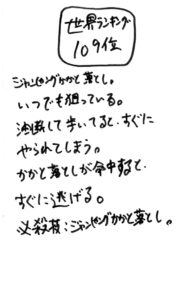 世界ランキング
109位
ジャンピングかかと落とし。
いつでも狙っている。
油断して歩いてると、すぐに
やられてしまう。
かかと落としが命中すると、
すぐに逃げる。
必殺技：ジャンピングかかと落とし。